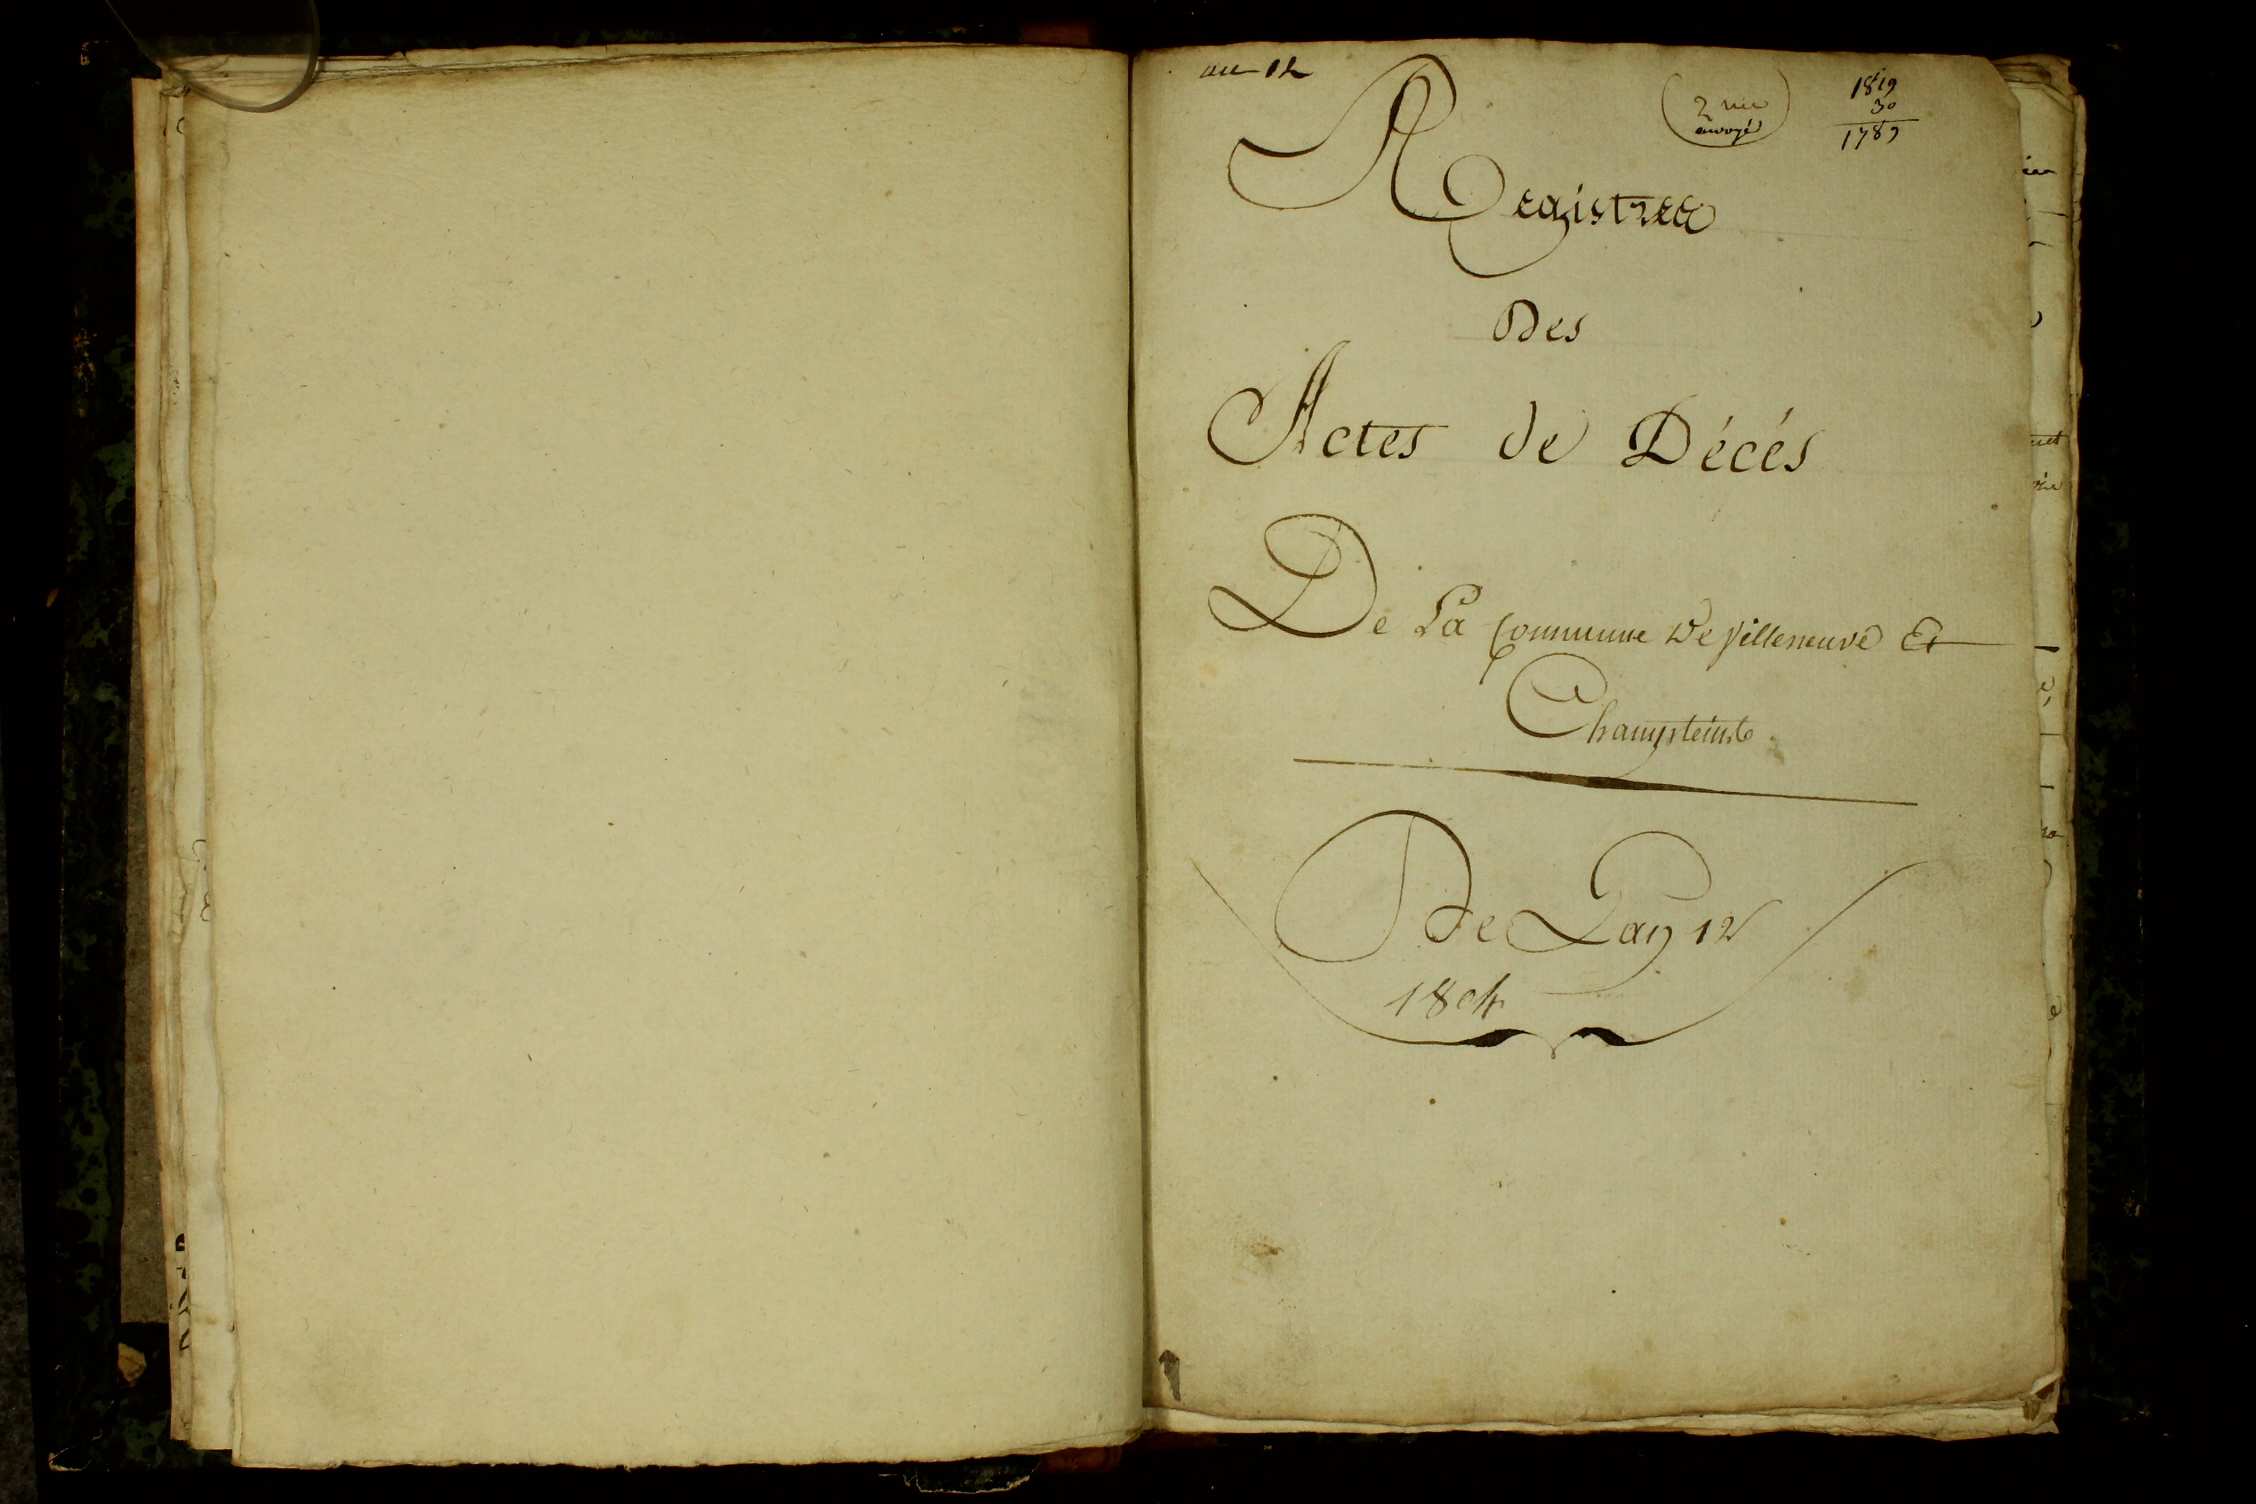 an 12
1819
30
1789
envoyé
Registre
Des
Actes de Décés
De La Commune De Villeneuve Et
Champteinte
De Lan 12
1804